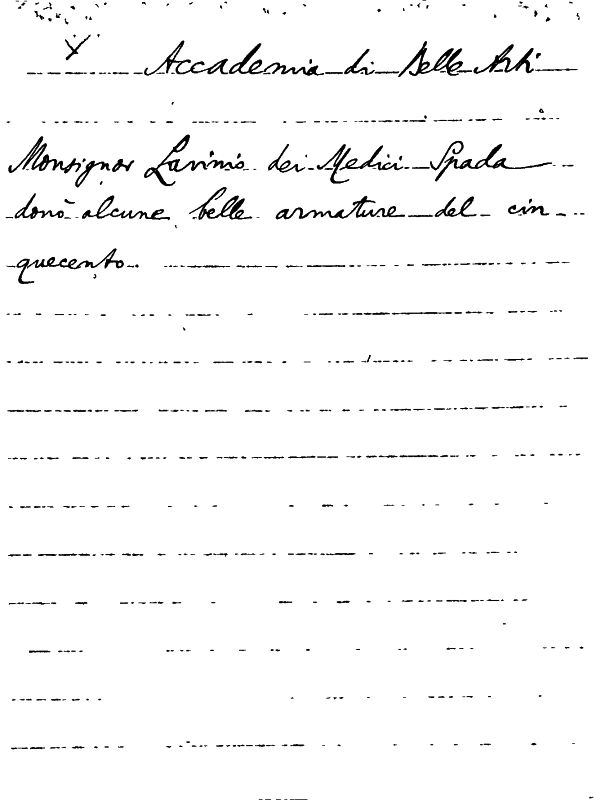 Accademia di Belle Arti
Monsignor Lavinio dei Medici Spada
donò alcune belle armature del cin
quecento.